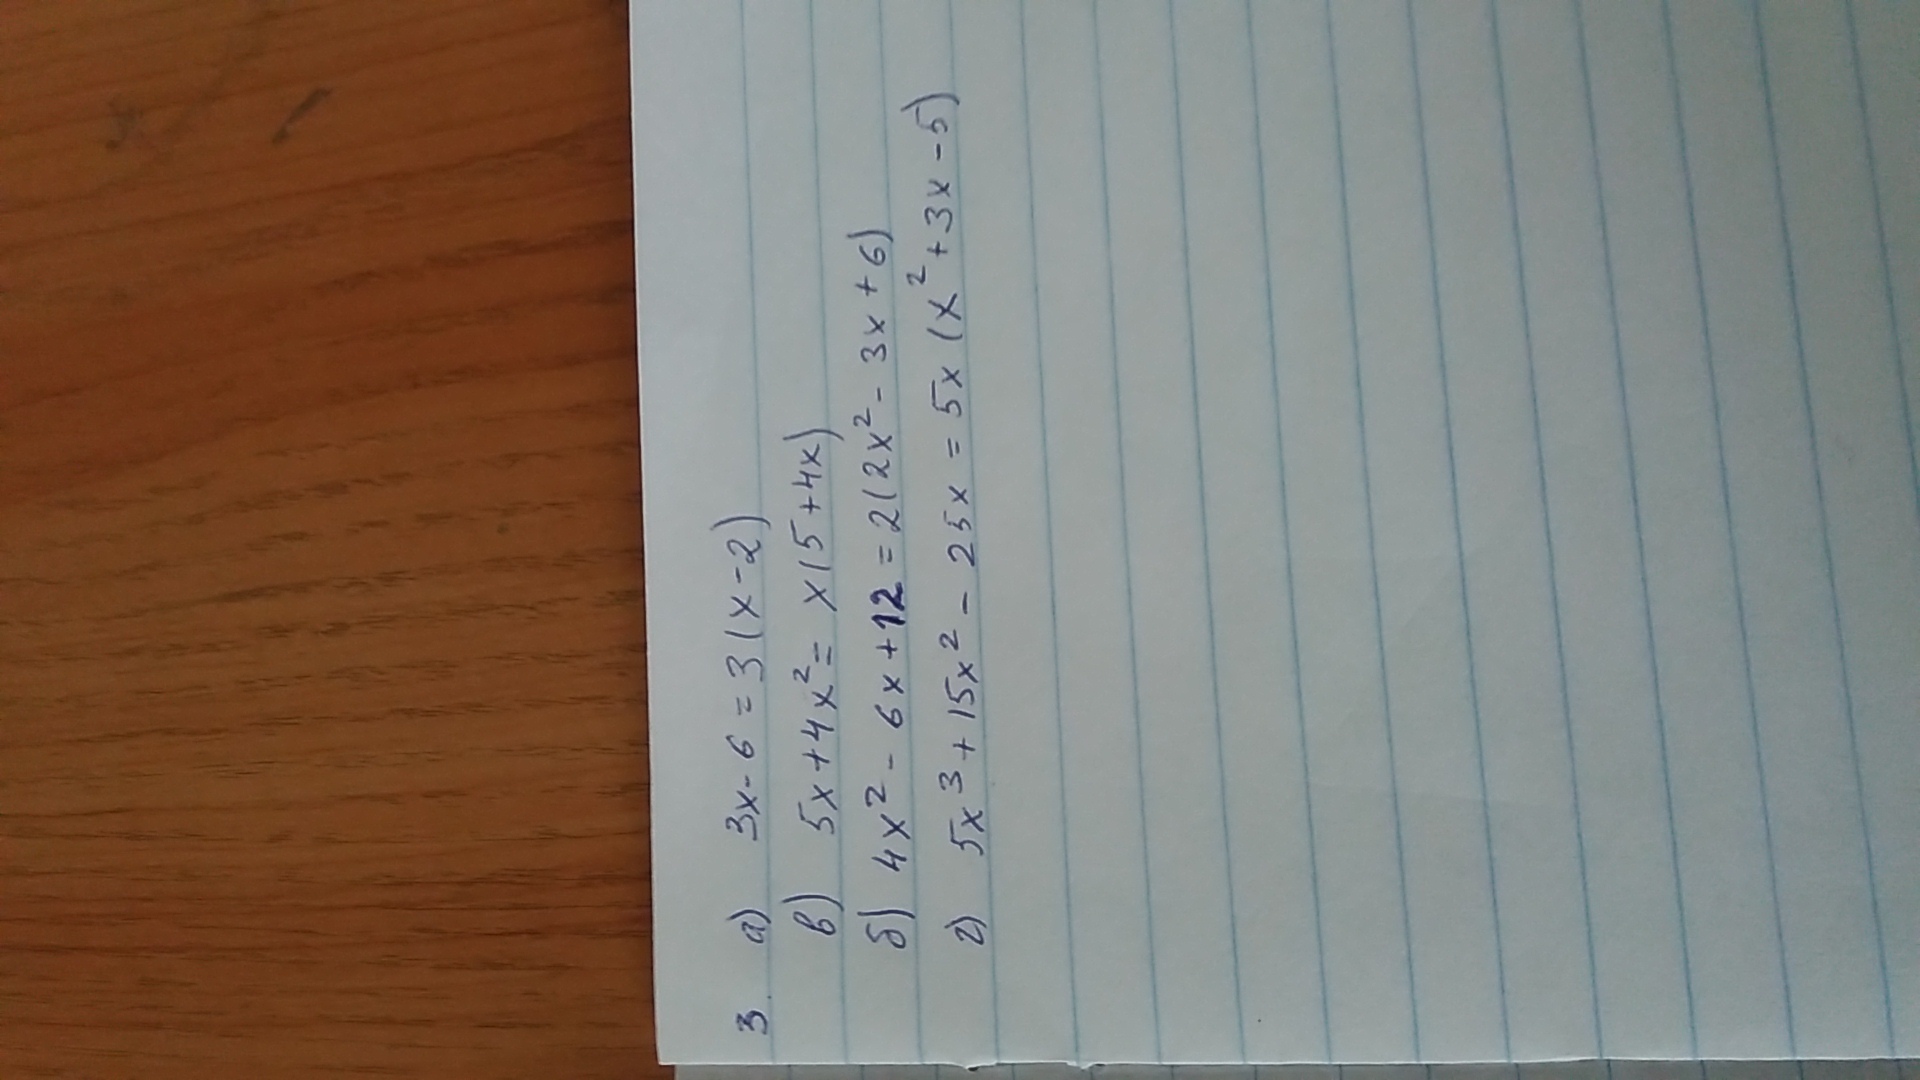 3. а) 3x - 6 = 3(x - 2)
в) 5x + 4x² = x(5 + 4x)
б) 4x² - 6x + 12 = 2(2x² - 3x + 6)
г) 5x³ + 15x² - 25x = 5x(x² + 3x - 5)